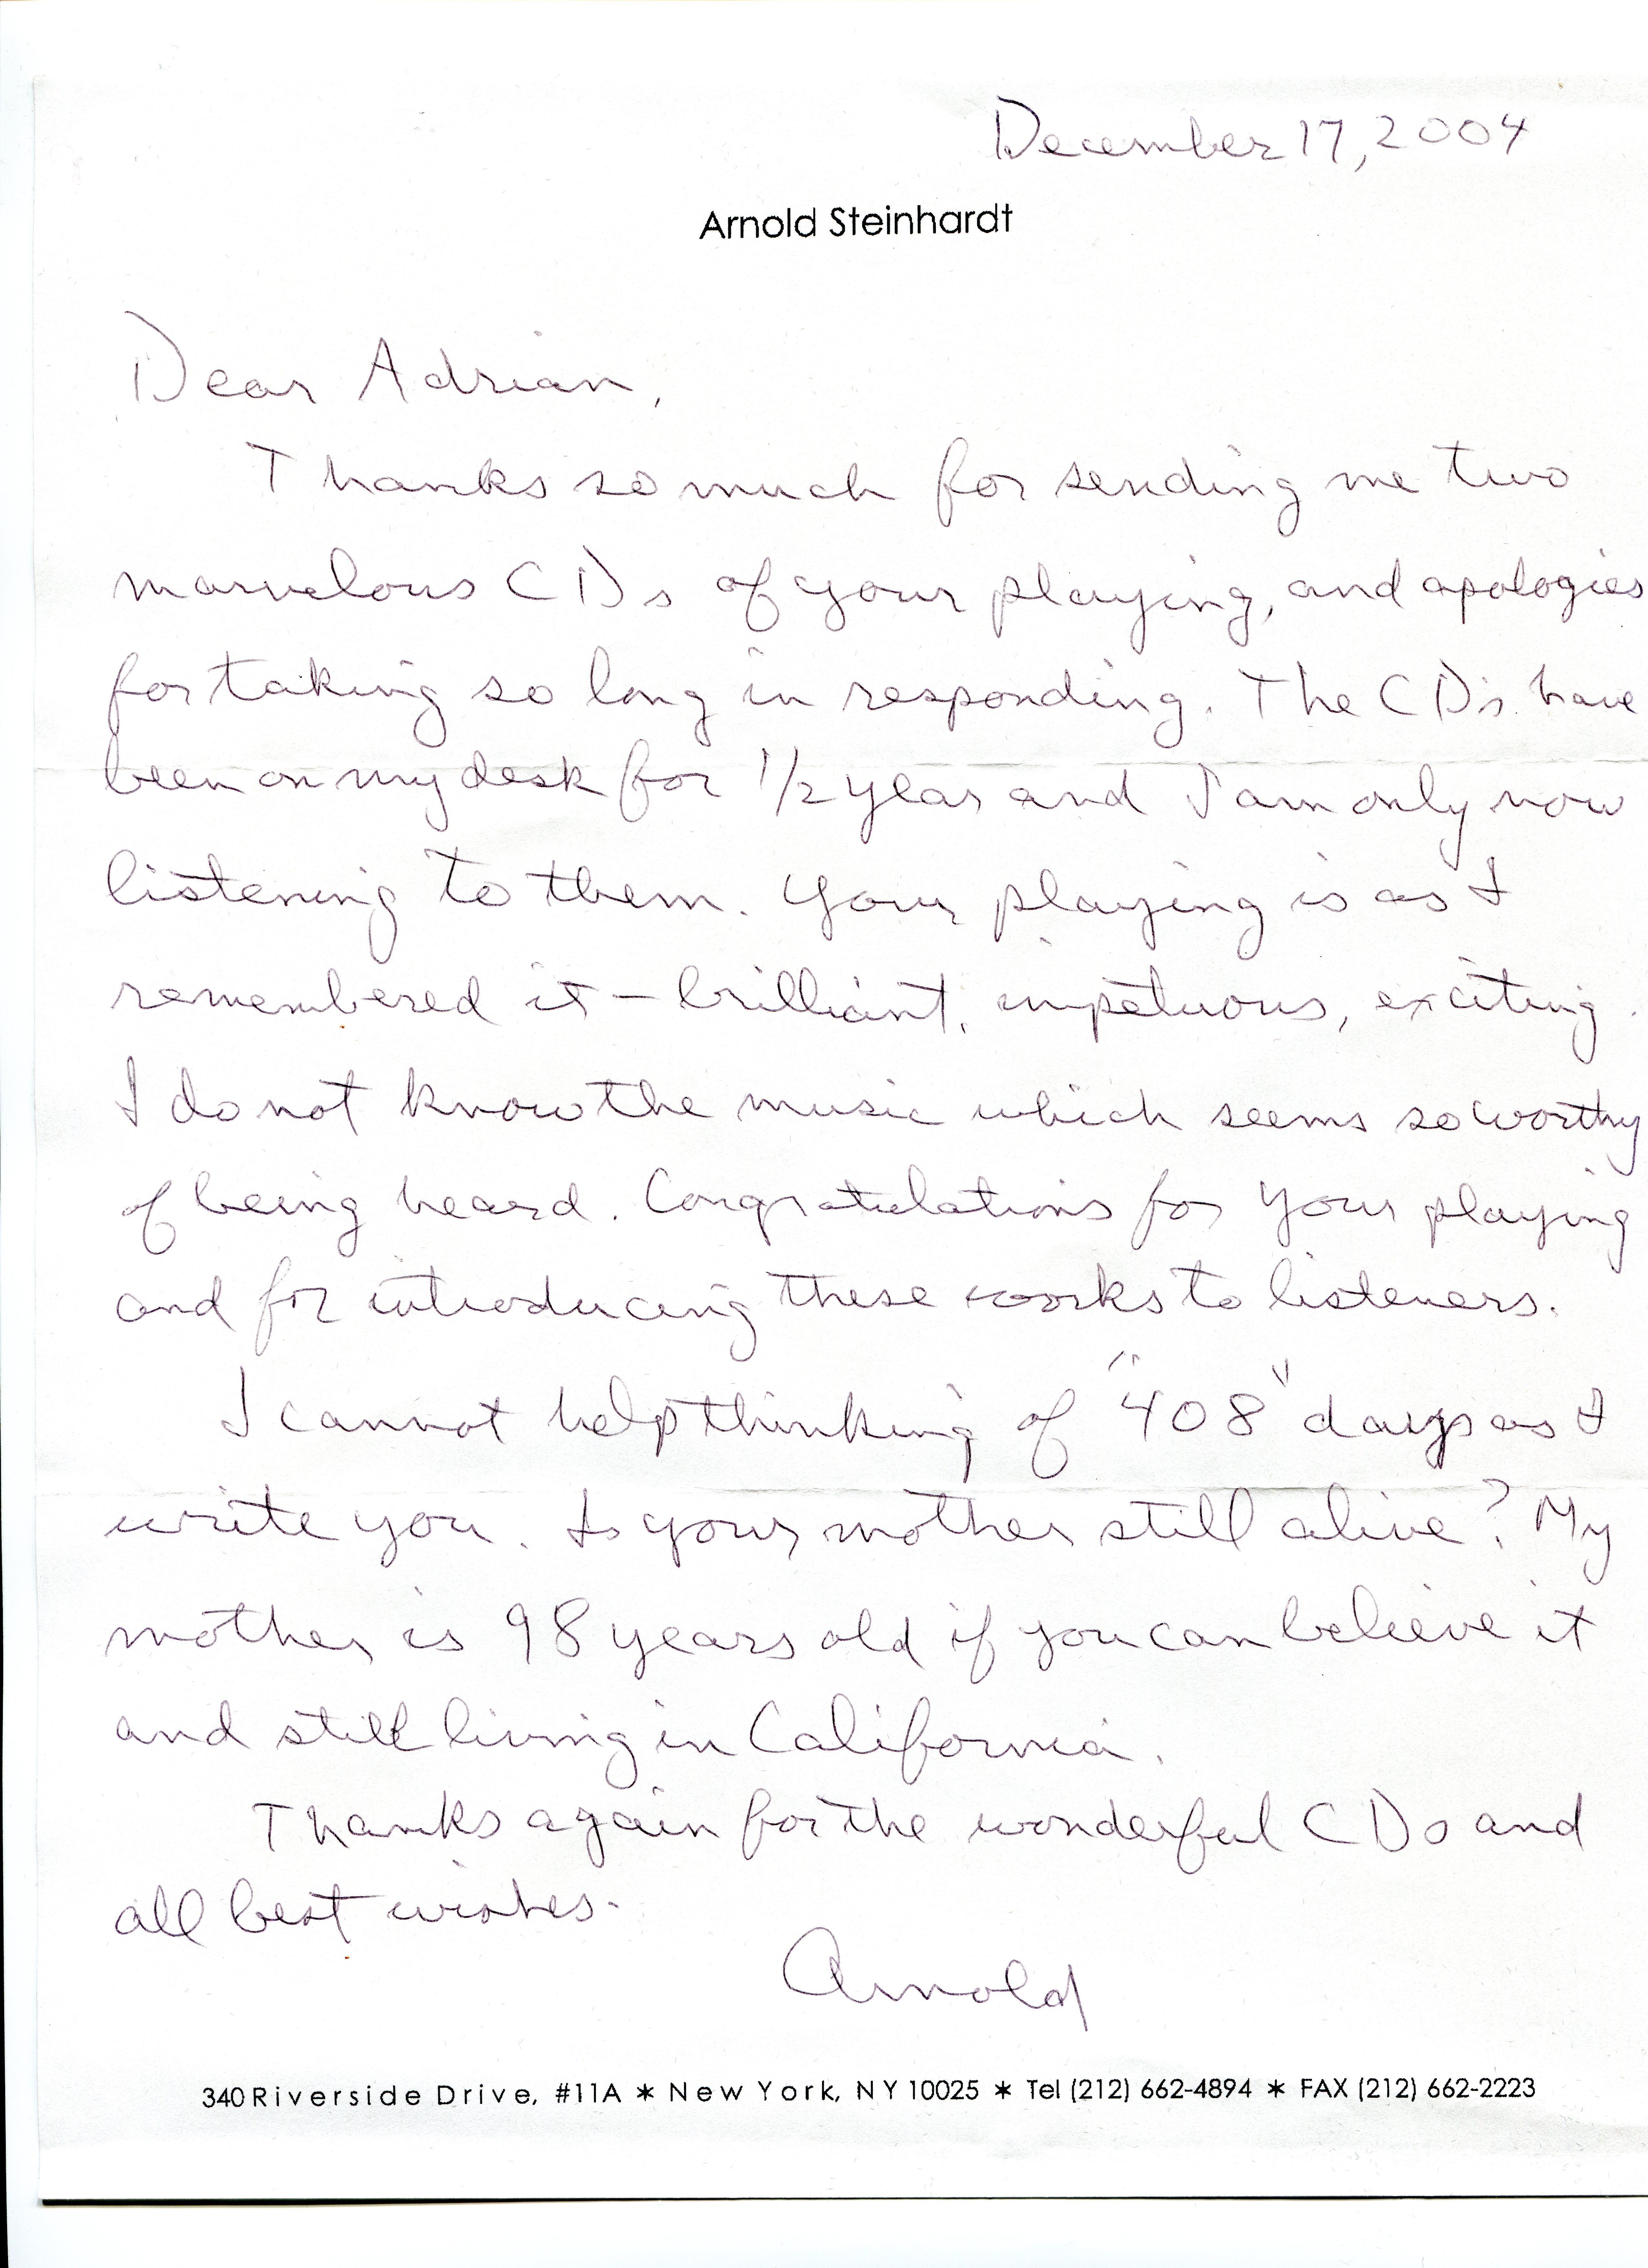 December 17, 2004
Arnold Steinhardt
Dear Adrian,
Thanks so much for sending me two
marvelous CDs of your playing, and apologies
for taking so long in responding. The CD's have
been on my desk for 1/2 year and I am only now
listening to them. Your playing is as I
remembered it - brilliant, impetuous, exciting.
I do not know the music which seems so worthy
of being heard. Congratulations for your playing
and for introducing these works to listeners.
I cannot help thinking of "408" days as I
write you. Is your mother still alive? My
mother is 98 years old if you can believe it
and still living in California.
Thanks again for the wonderful CDs and
all best wishes.
Arnold
340 Riverside Drive, #11A * New York, NY 10025 * Tel (212) 662-4894 * FAX (212) 662-2223